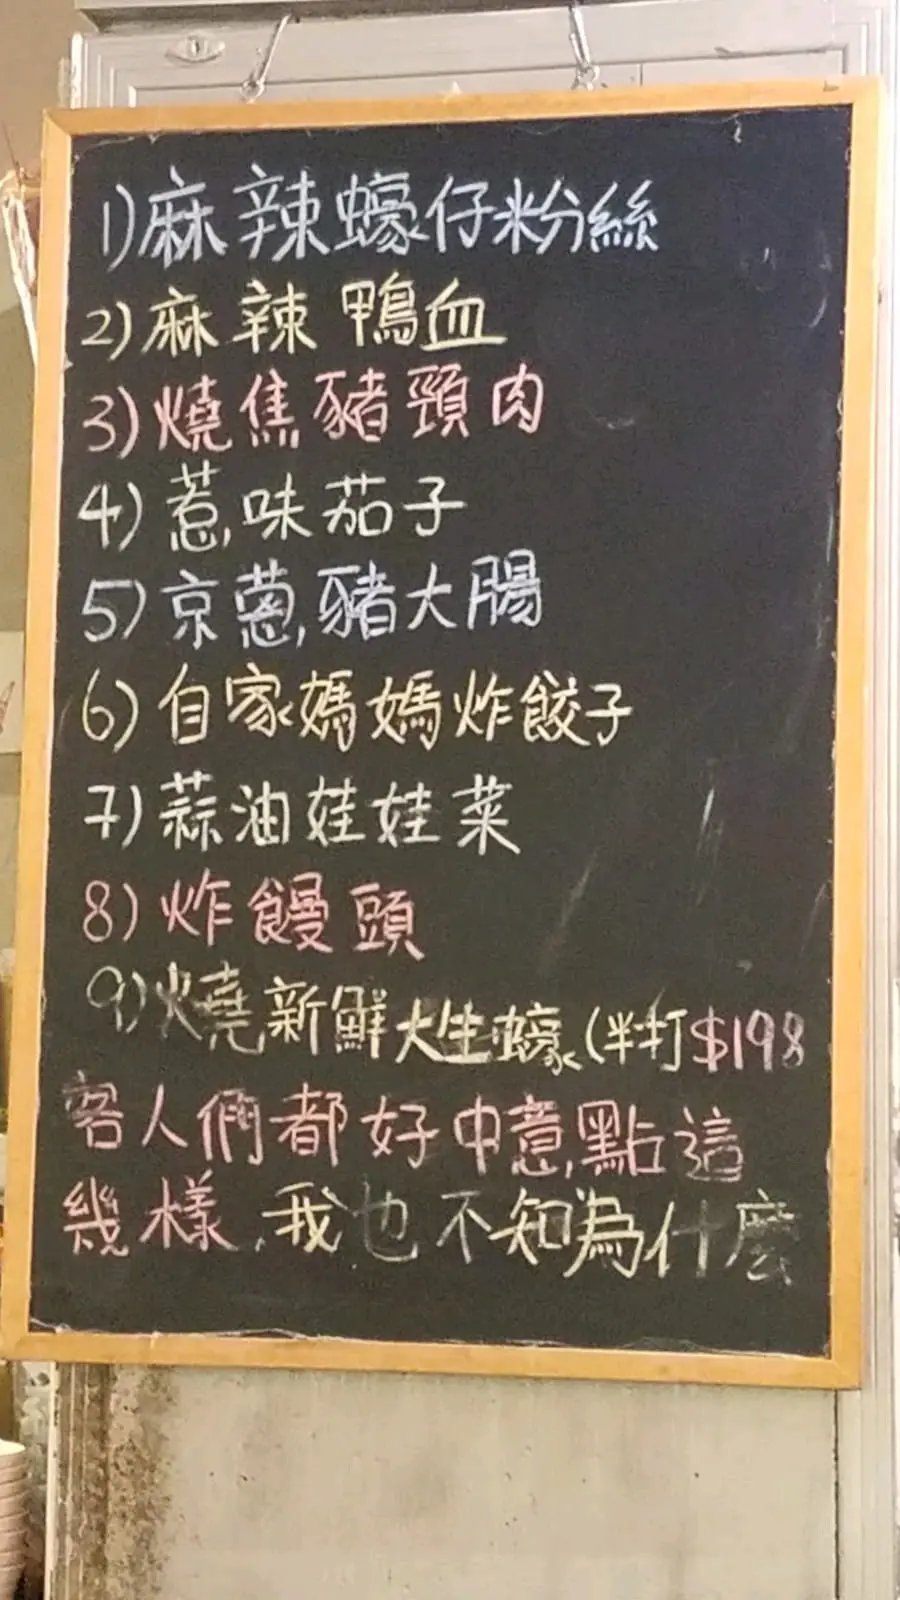 1)麻辣蠔仔粉絲
2)麻辣鴨血
3)燒焦豬頸肉
4)惹味茄子
5)京蔥豬大腸
6)自家媽媽炸餃子
7)蒜油娃娃菜
8)炸饅頭
9)燒新鮮大生蠔(半打$198
客人們都好中意點這
幾樣,我也不知為什麼